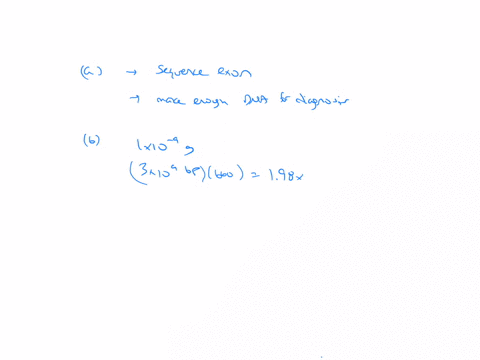 (a) → sequence exon
→ make enough DNA for diagnosis
(b) 1x10⁻⁹ g
(3x10⁹ bp)(660) = 1.98x